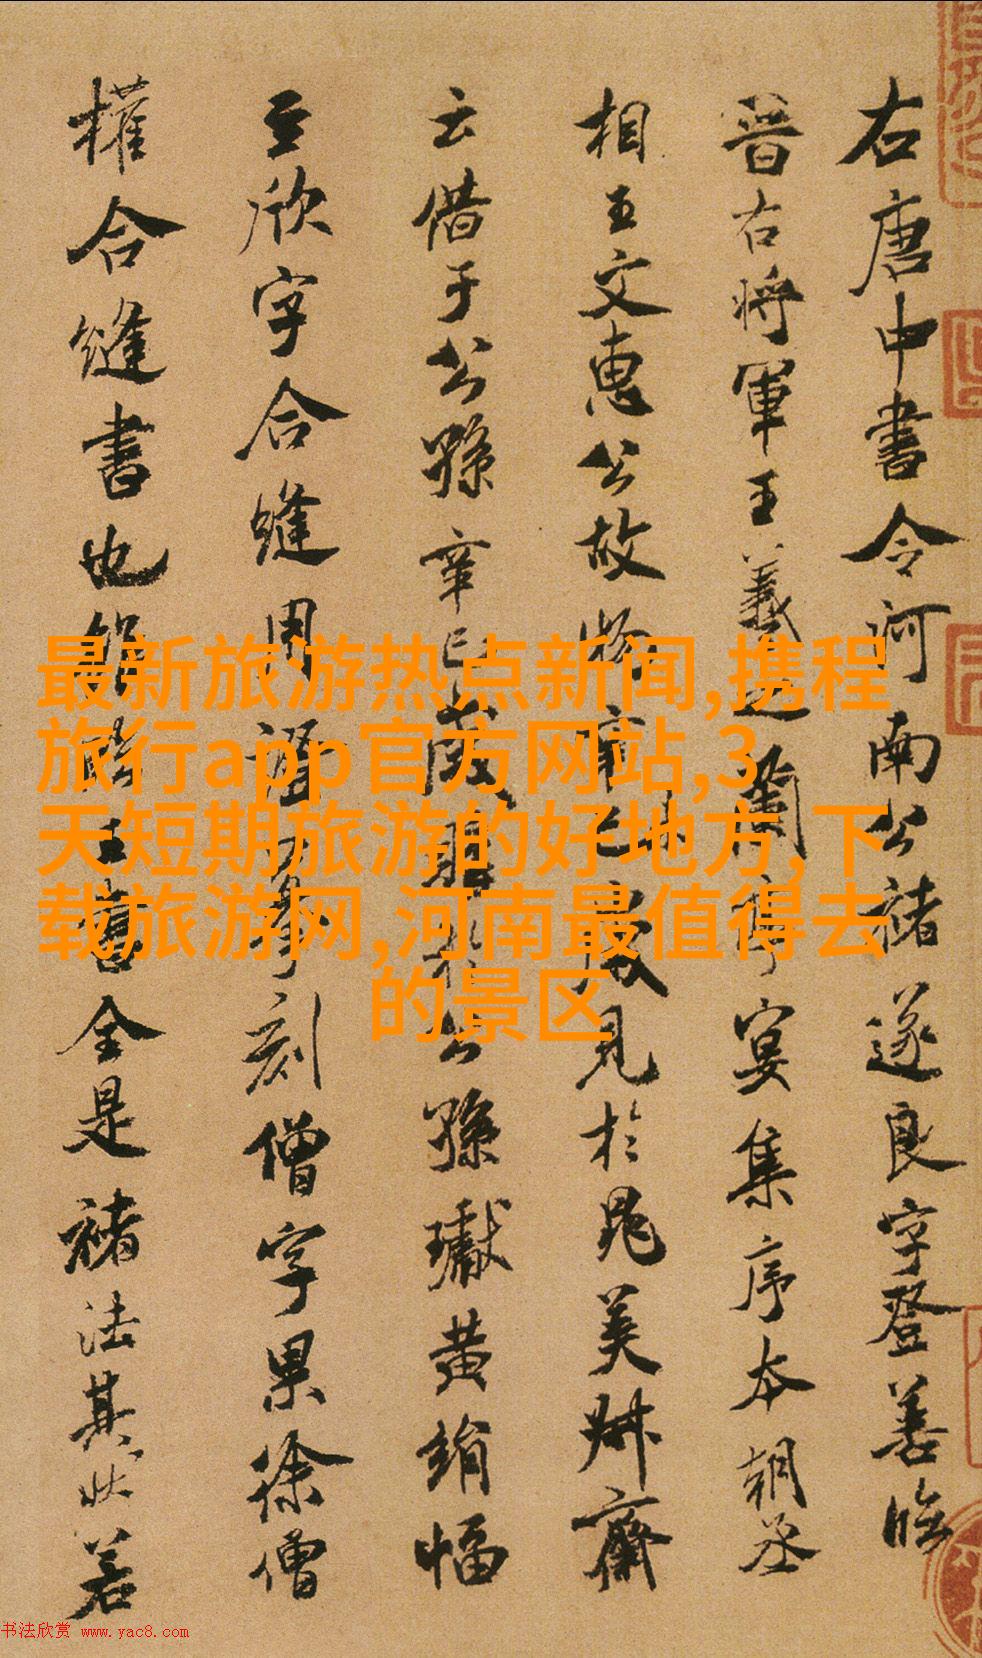 右唐中書令河南公褚遂良字登善臨
晉右將軍王羲之蘭亭宴集序本朝丞
相王文惠公故物辛巳歲見於晁美叔齋
云借于公孫辛巳歲購於公孫瓛黃絹幅
至欣字合縫用證摹刻僧字果徐僧
權合縫書也雖臨王書全是褚法其狀若
最新旅游热点新闻,携程
旅行app官方网站,3
天短期旅游的好地方,下
载旅游网,河南最值得去
的景区
书法欣赏 www.yac8.com